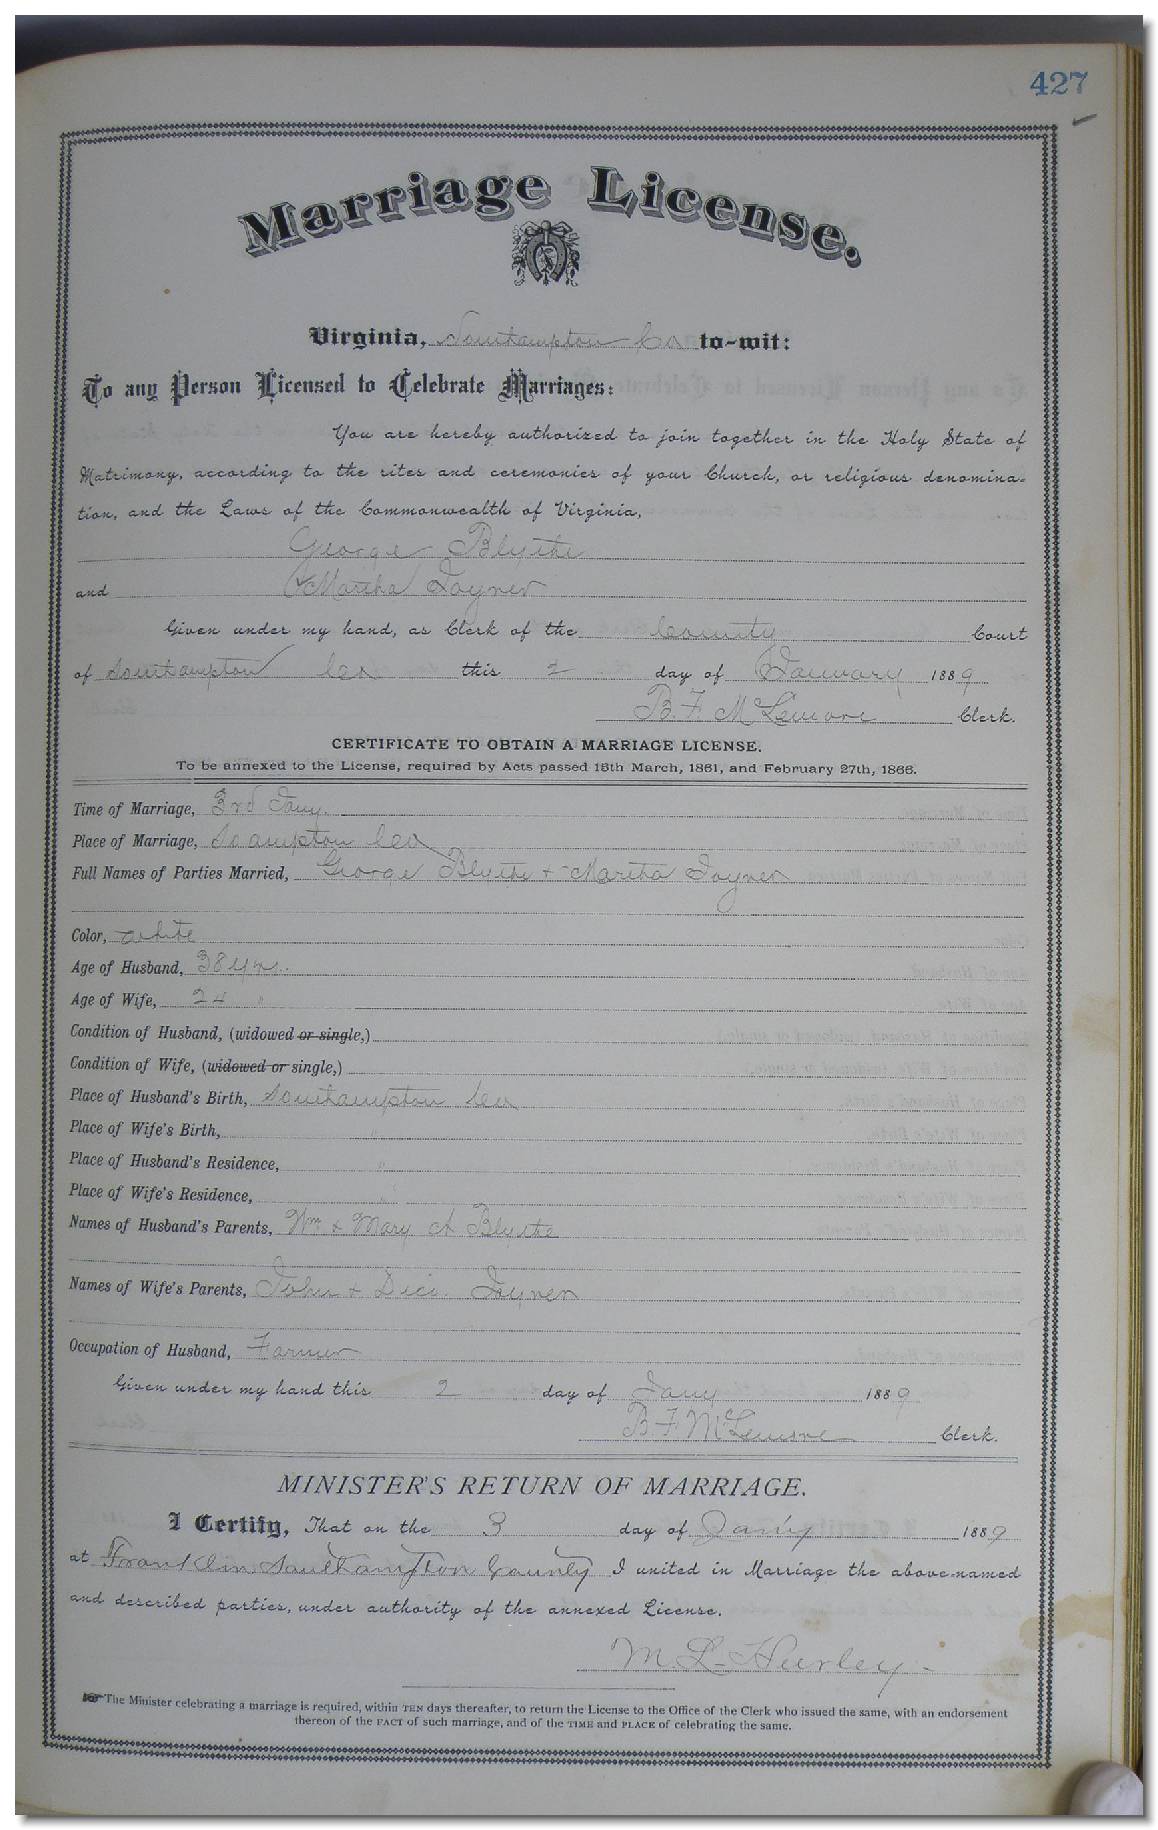 427
Marriage License.
Virginia, Southampton Co to-wit:
To any Person Licensed to Celebrate Marriages:
You are hereby authorized to join together in the Holy State of
Matrimony, according to the rites and ceremonies of your Church, or religious denomina-
tion, and the Laws of the Commonwealth of Virginia,
George Blythe
and Martha Joyner
Given under my hand, as Clerk of the County Court
of Southampton Co this 2 day of January 1889
B. F. McLemore Clerk.
CERTIFICATE TO OBTAIN A MARRIAGE LICENSE.
To be annexed to the License, required by Acts passed 15th March, 1861, and February 27th, 1866.
Time of Marriage, 3rd Jany.
Place of Marriage, So ampton Co
Full Names of Parties Married, George Blythe + Martha Joyner
Color, white
Age of Husband, 38 yrs.
Age of Wife, 24 "
Condition of Husband, (widowed or single,)
Condition of Wife, (widowed or single,)
Place of Husband's Birth, Southampton Co
Place of Wife's Birth, "
Place of Husband's Residence, "
Place of Wife's Residence, "
Names of Husband's Parents, Wm + Mary A Blythe
Names of Wife's Parents, John + Dici Joyner
Occupation of Husband, Farmer
Given under my hand this 2 day of Jany 1889
B F McLemore Clerk.
MINISTER'S RETURN OF MARRIAGE.
I Certify, That on the 3 day of Jany 1889
at Franklin Southampton County I united in Marriage the above-named
and described parties, under authority of the annexed License.
M. L. Hurley
The Minister celebrating a marriage is required, within TEN days thereafter, to return the License to the Office of the Clerk who issued the same, with an endorsement
thereon of the FACT of such marriage, and of the TIME and PLACE of celebrating the same.